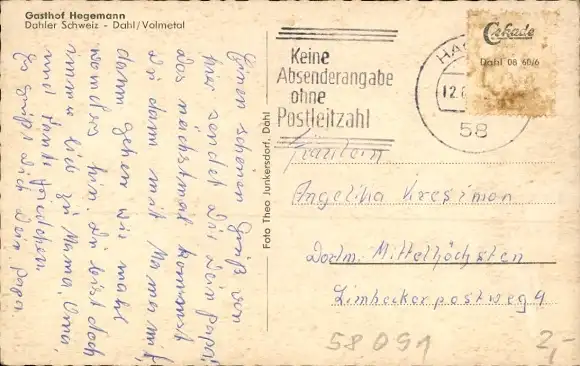 Gasthof Hegemann
Dahler Schweiz - Dahl/Volmetal
Einen schönen Gruß von
hier sendet Dir Dein Papa!
Das nächstmal kommst
Du dann mit Mama mit,
dann gehen wir mahl
woanders hin. Du bist doch
immer lieb zu Mama, Oma,
und Tante
Es grüßt Dich Dein Papa
Foto Theo Junkersdorf, Dahl
Keine
Absenderangabe
ohne
Postleitzahl
HA
12.
58
Cekade
Dahl 08 60/6
Fräulein
Angelika Kressman
Dortm. Mittelhöchsten
Limbeckerpostweg 9
58091
2,-